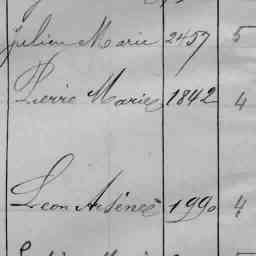 Julien Marie 2457 5
Pierre Marie 1842 4
Léon Arsène 1990 4